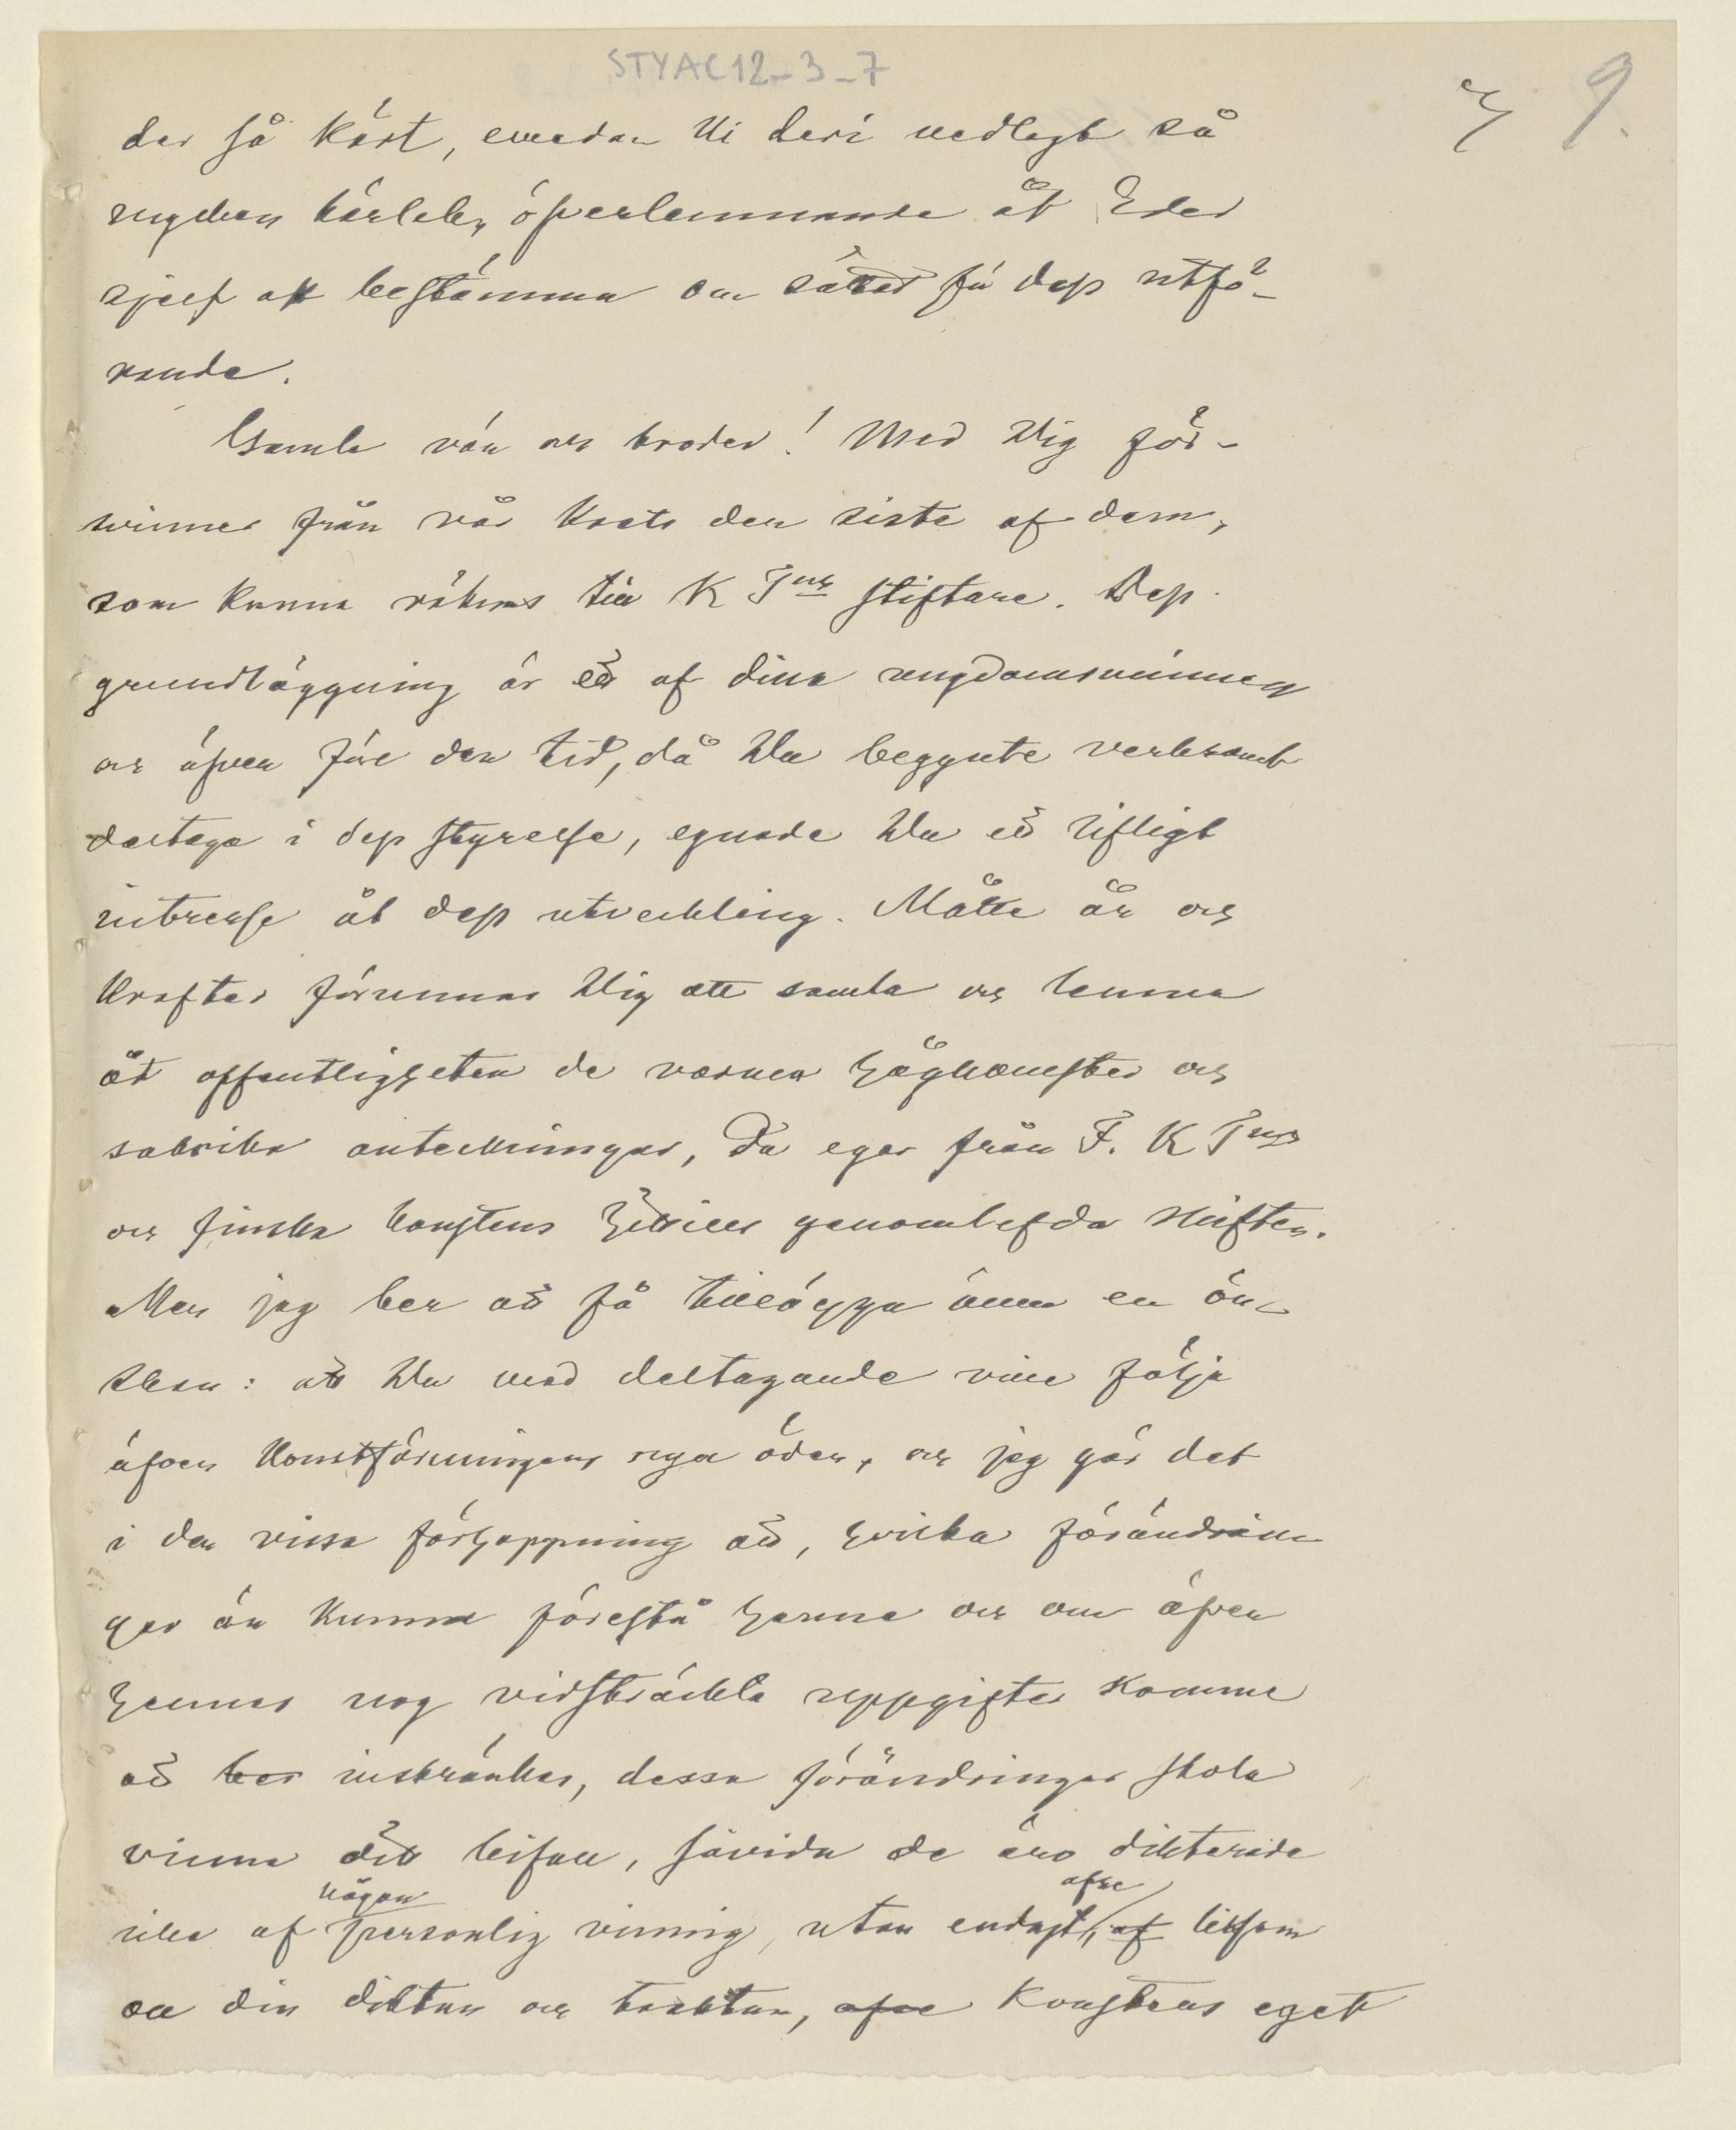 STYAC12-3-7
9.
der så kärt, emedan Ni deri nedlagt så
mycken kärlek, öfverlemnande åt Eder
sjelf att bestämma om sättet för dess utfö-
rande.
Gamle vän och broder! Med Dig för-
svinner från vår krets den siste af dem,
som kunna räknas till K Fngs stiftare. Dess
grundläggning är ett af dina ungdomsminnen
och äfven före den tid, då Du begynte verksamt
deltaga i dess styrelse, egnade Du ett lifligt
intresse åt dess utveckling. Måtte år och
krafter förunnas Dig att samla och lemna
åt offentligheten de varma hågkomster och
sakrika anteckningar, Du eger från F. K Fngs
och finska konstens hittills genomlefda skiften.
Men jag ber att få tillägga ännu en ön-
skan: att Du med deltagande ville följa
äfven Konstföreningens nya öden, och jag gör det
i den vissa förhoppning att, hvilka förändrin-
gar än kunna förestå henne och om äfven
hennes nog vidsträckta uppgifter komme
att ber inskränkas, dessa förändringar skola
vinna ditt bifall, såvida de äro dikterade
icke af någon personlig vinning, utan endast, af afse liksom
all din diktan och traktan, afse konstens eget